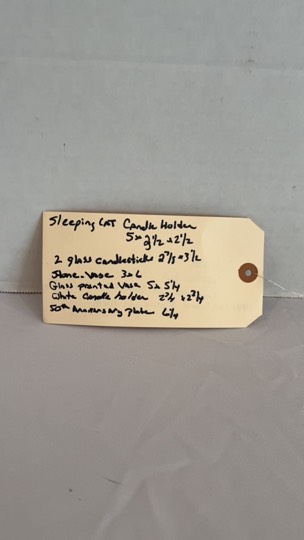 Sleeping CAT Candle Holder
5x 3 1/2 x 2 1/2
2 glass candlesticks 2 7/8 x 3 1/2
Stone Vase 3x6
Glass pronted Vase 5x 5 1/4
White Candle holder 2 3/4 x 2 3/4
50th Anniversary Plate 6 1/4